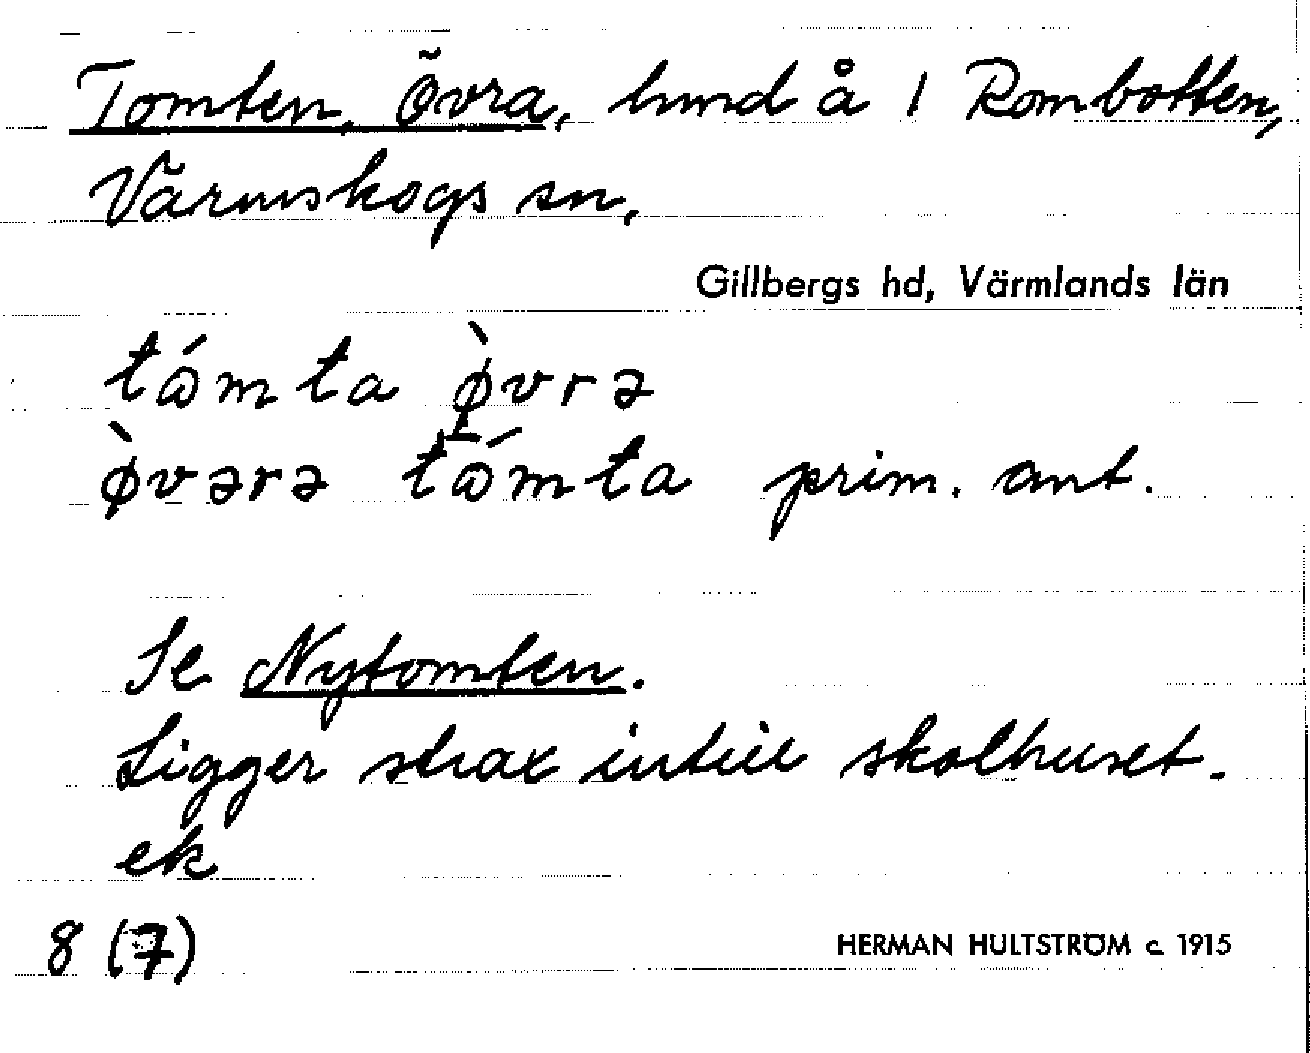 Tomten, Övra, hmd å 1 Rombotten,
Värmskogs sn,
Gillbergs hd, Värmlands län
tɷ́mta ø̀vrə
ø̀vərə tɷ́mta prim. ant.
Se Nytomten.
Ligger strax intill skolhuset.
ek
8 (7)
HERMAN HULTSTRÖM c. 1915